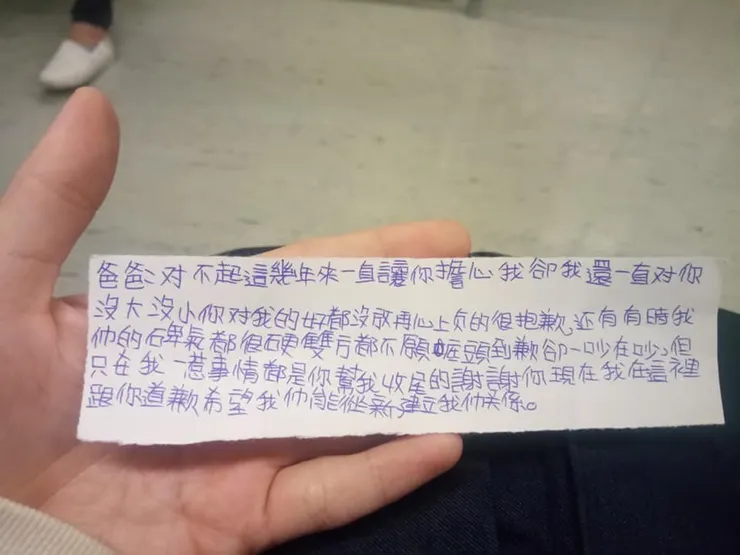 爸爸:对不起這幾年來一直讓你擔心我卻我還一直对你
沒大沒小你对我的好都沒放再心上真的很抱歉,还有有時我
們的碑氣都很硬雙方都不願低頭到歉卻一吵在吵,但
只在我一惹事情都是你幫我收屋的謝謝你現在我在這裡
跟你道歉希望我們能從新建立我們关係。